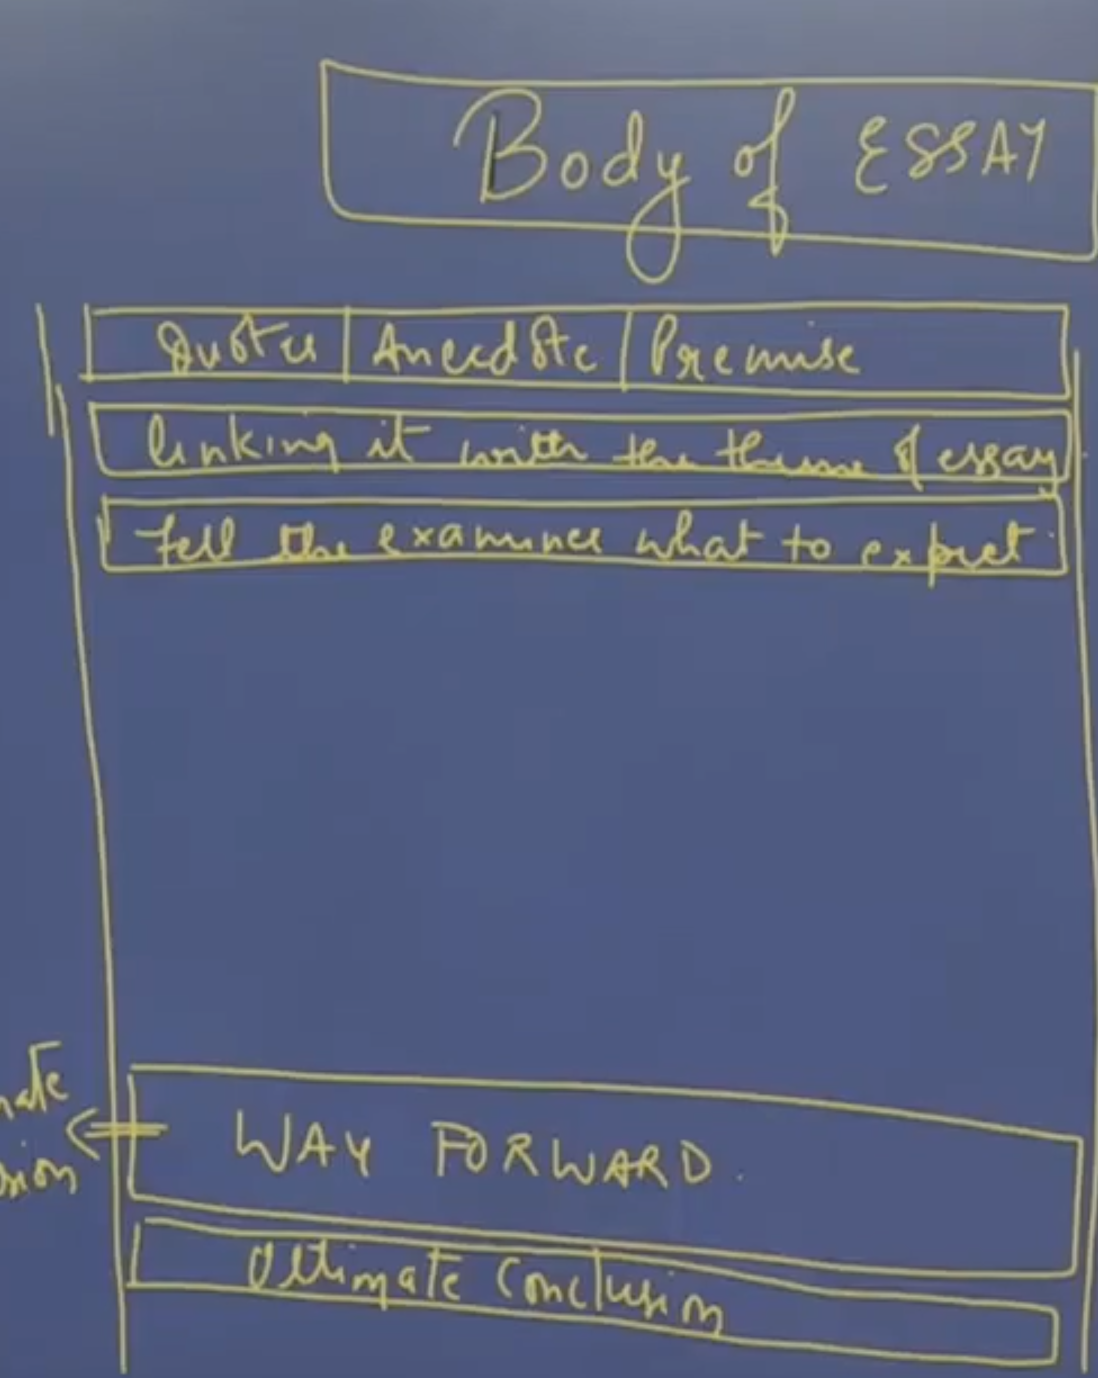 Body of ESSAY
Quotes | Anecdote | Premise
linking it with the theme of essay
Tell the examiner what to expect
WAY FORWARD.
Ultimate Conclusion